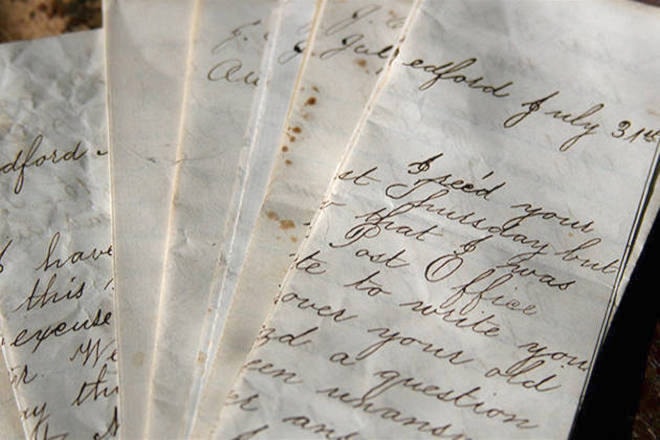 dford
I have
this
excuse
r. We
y th
J.
J. Jul
Au
edford July 31st
I rec'd your
st Thursday but
that I was
Post Office
te to write you
over your old
d a question
een unansw
er an